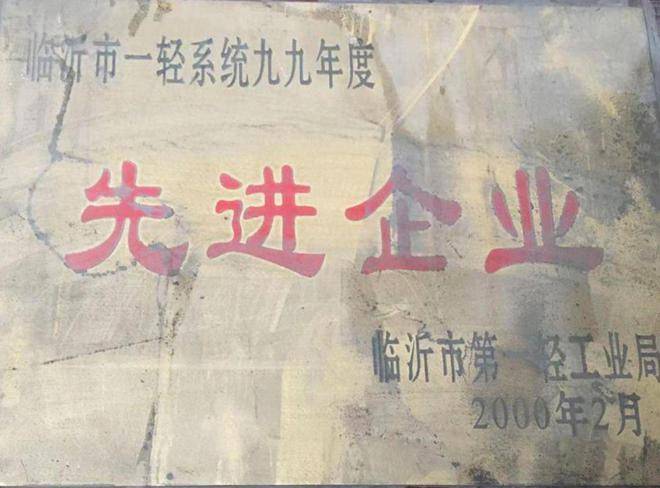 临沂市一轻系统九九年度
先进企业
临沂市第一轻工业局
2000年2月